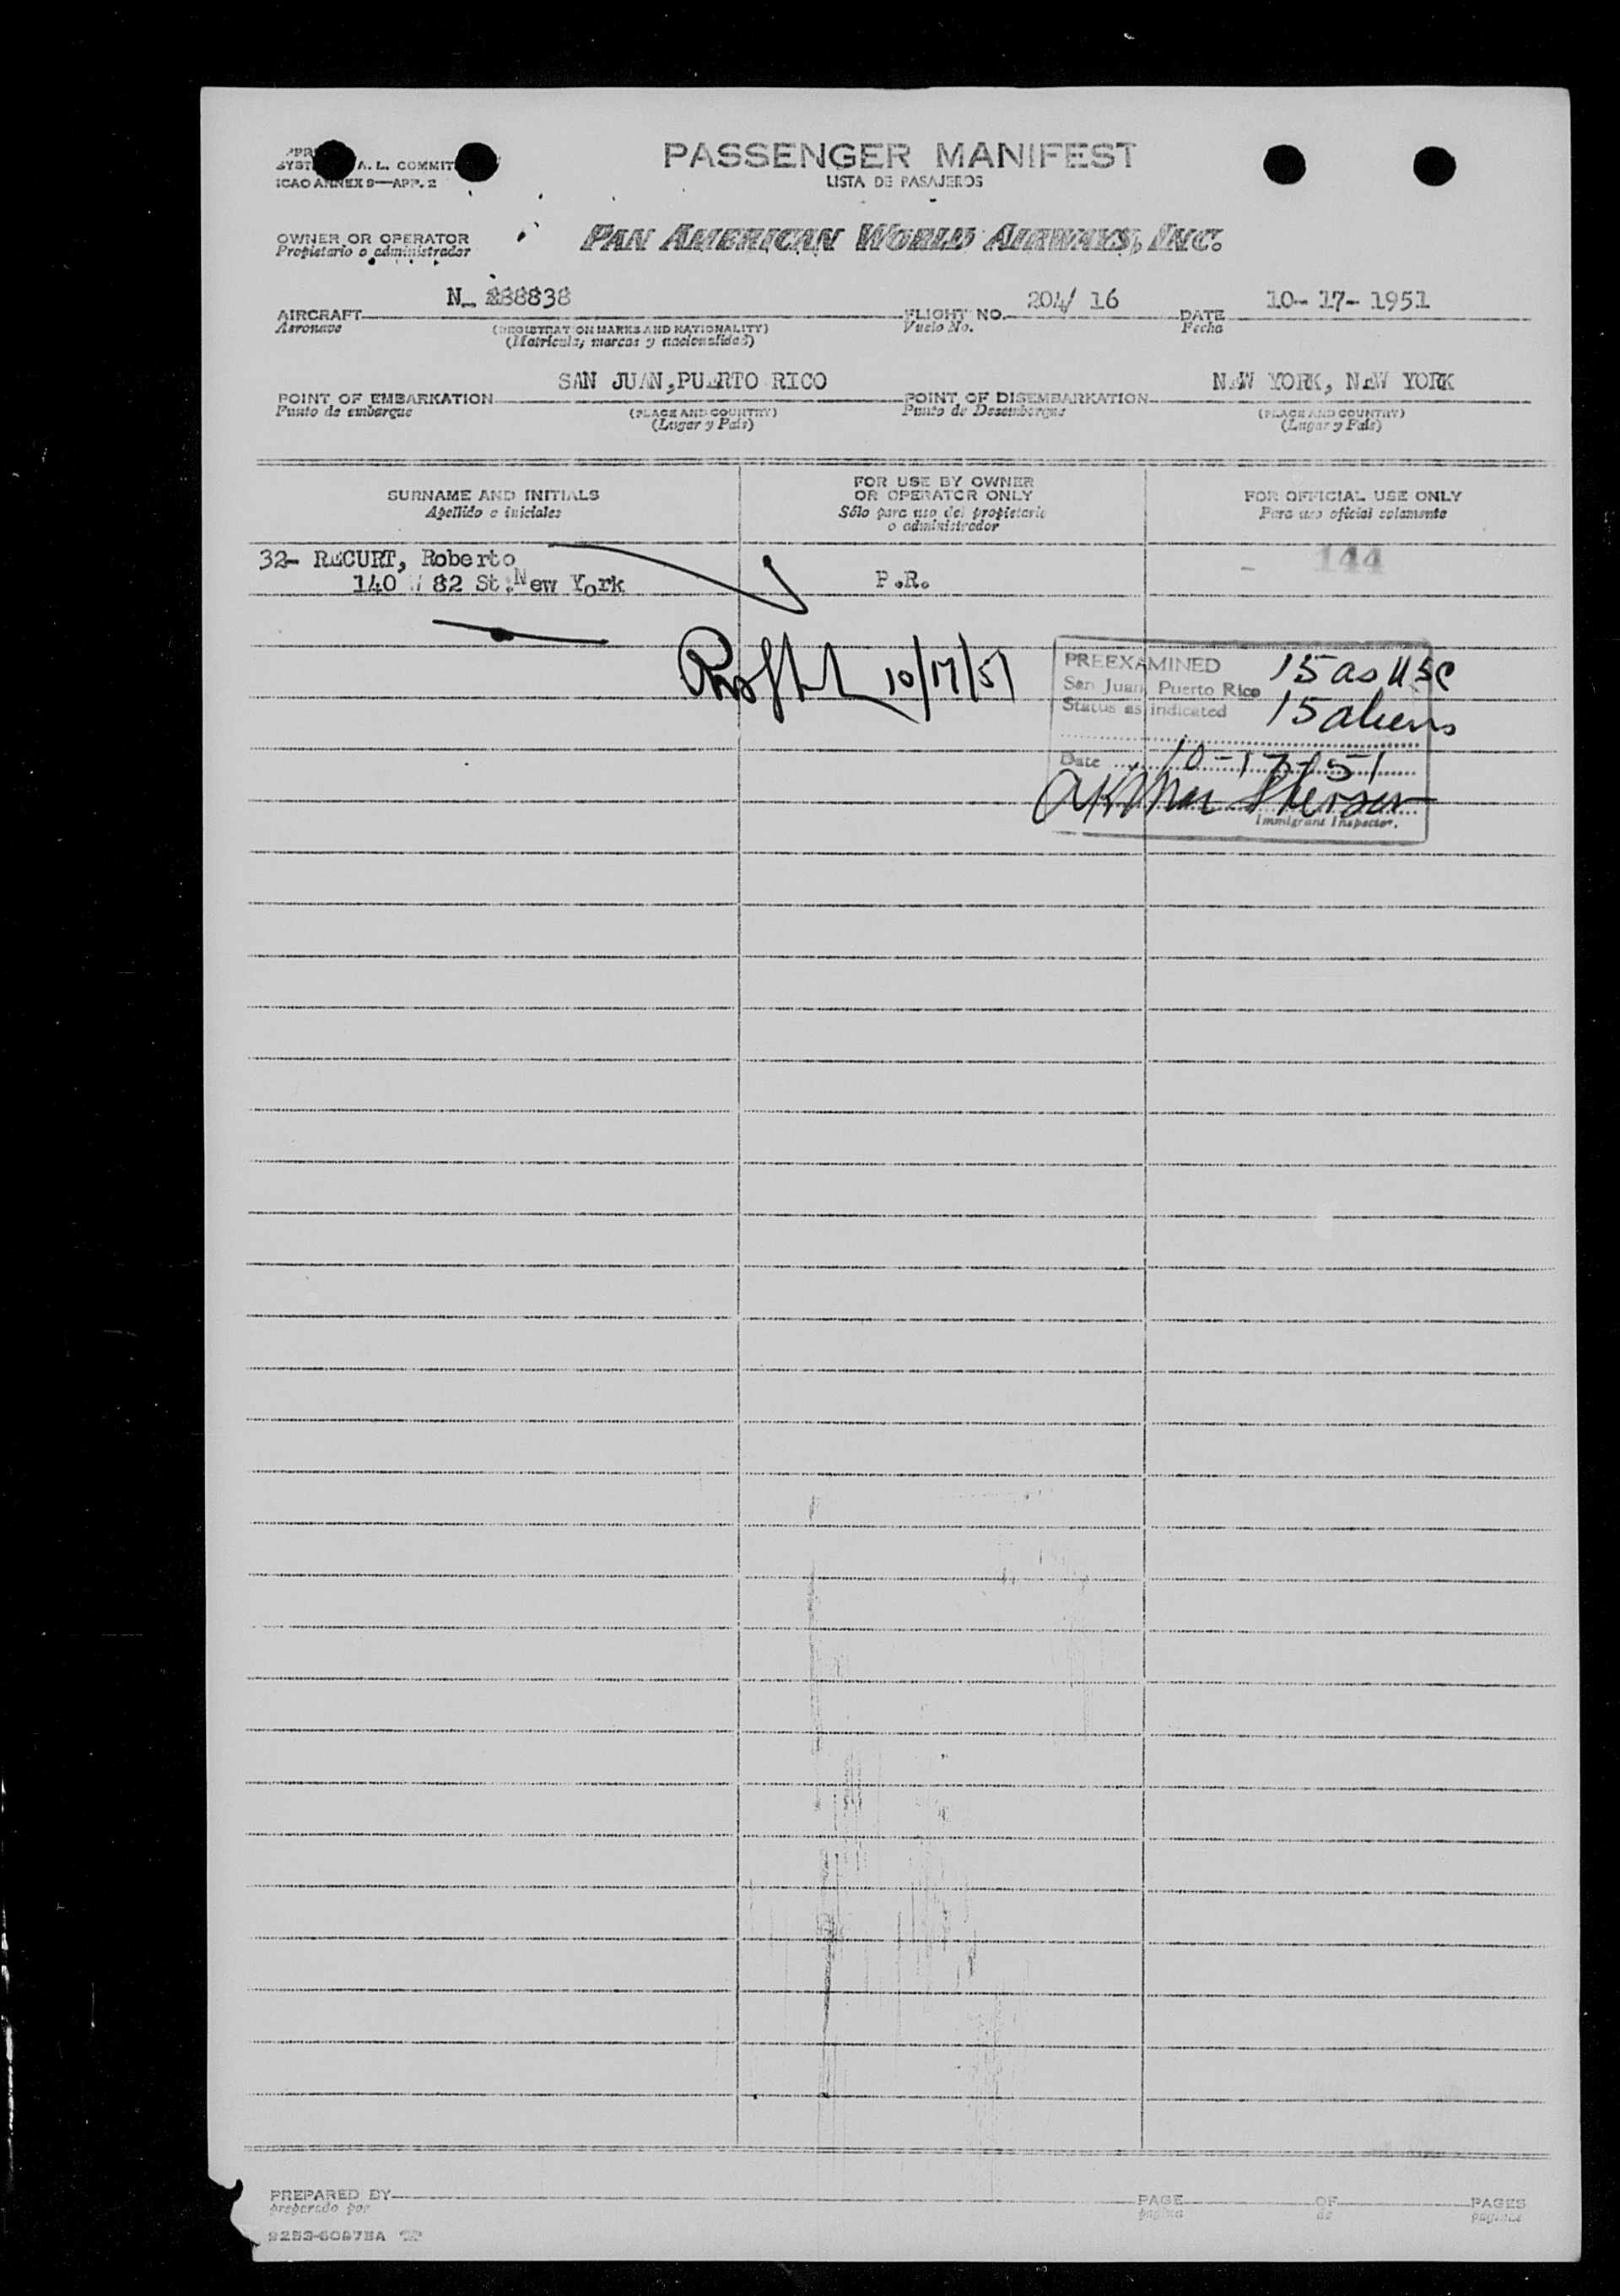 A. L. COMMIT
ICAO ANNEX 9—APP. 2
PASSENGER MANIFEST
LISTA DE PASAJEROS
OWNER OR OPERATOR
Propietario o administrador
PAN AMERICAN WORLD AIRWAYS, INC.
N- 288838
204/ 16
10- 17- 1951
AIRCRAFT
Aeronave
(REGISTRATION MARKS AND NATIONALITY)
(Matricula, marcas y nacionalidad)
FLIGHT NO.
Vuelo No.
DATE
Fecha
SAN JUAN,PUERTO RICO
NEW YORK, NEW YORK
POINT OF EMBARKATION
Punto de embarque
(PLACE AND COUNTRY)
(Lugar y País)
POINT OF DISEMBARKATION
Punto de Desembarque
(PLACE AND COUNTRY)
(Lugar y País)
SURNAME AND INITIALS
Apellido e iniciales
FOR USE BY OWNER
OR OPERATOR ONLY
Sólo para uso del propietario
o administrador
FOR OFFICIAL USE ONLY
Para uso oficial solamente
32- RECURT, Roberto
144
140 W 82 St.New York
P.R.
10/17/51
PREEXAMINED
San Juan, Puerto Rico
Status as indicated
15 as USC
15 aliens
Date 10-17-51
Immigrant Inspector.
PREPARED BY
preparado por
PAGE
página
OF
de
PAGES
páginas